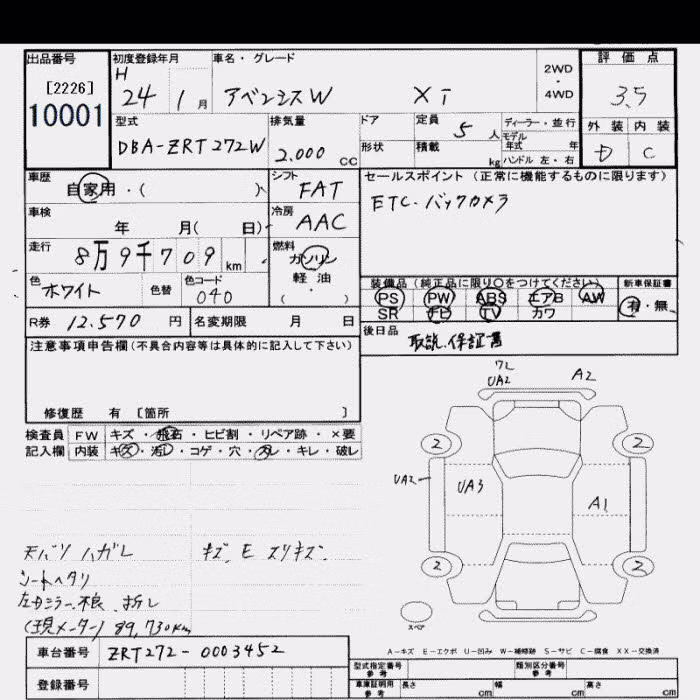 出品番号 初度登録年月 車名・グレード 2WD・4WD 評価点
[2226] H 24 1月 アベンシスW XI 3.5
10001 型式 排気量 ドア 定員 5人 ディーラー・並行 外装 内装
DBA-ZRT272W 2.000 CC 形状 積載 kg モデル年式 年 ハンドル 左・右 C
車歴 自家用・( ) シフト FAT セールスポイント(正常に機能するものに限ります)
車検 年 月( 日) 冷房 AAC ETC. バックカメラ
走行 8万9千709km 燃料 ガソリン
色 ホワイト 色替 色コード 040 軽油 ( ・ ) 装備品(純正品に限り○をつけてください) 新車保証書
PS PW ABS エアB AW 有・無
R券 12.570円 名変期限 月 日 SR ナビ TV カワ
注意事項申告欄(不具合内容等は具体的に記入して下さい) 後日品 取説.保証書
修復歴 有 [箇所 ]
検査員 FW キズ・飛石・ヒビ割・リペア跡・×要
記入欄 内装 キズ・汚レ・コゲ・穴・スレ・キレ・破レ
ワレ
UA2 A2
2 2
UA2 UA3 A1
2 2
スペア
天バリ ハガレ キズ. E スリキズ.
シートヘタリ
左ドミラー.不良.折レ
(現メーター) 89,730km
A-キズ E-エクボ U-凹み W-補修跡 S-サビ C-腐食 XX-交換済
車台番号 ZRT272-0003452 型式指定番号 参考 類別区分番号 参考
登録番号 車庫証明用 参考 長さ cm 幅 cm 高さ cm